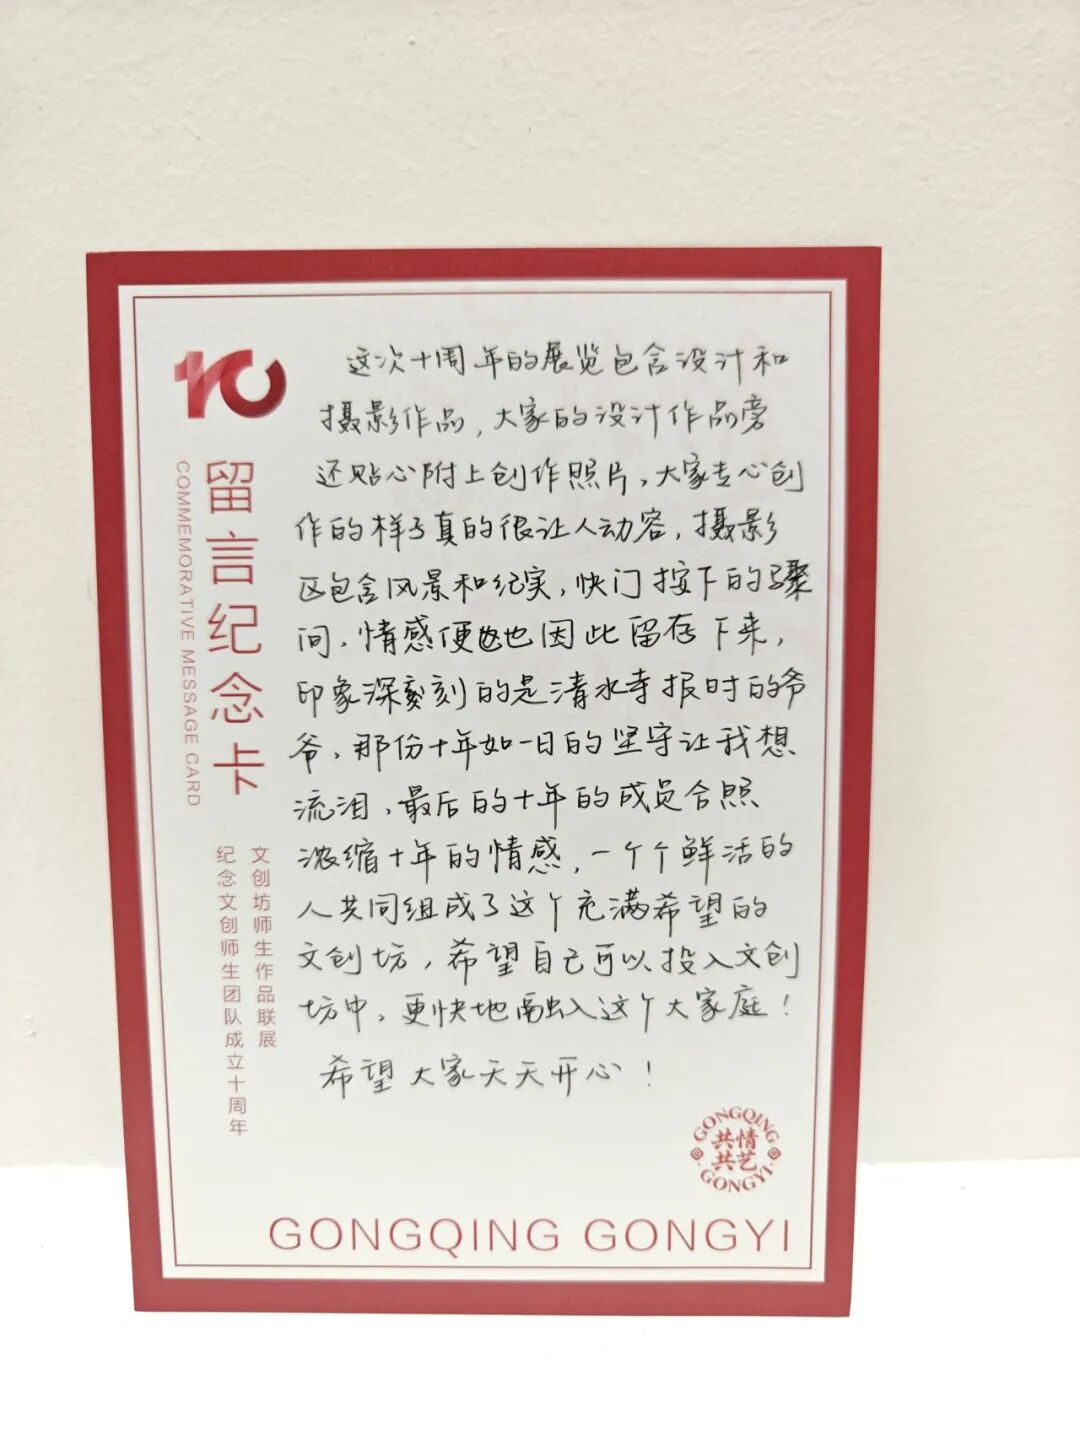 10
留言纪念卡
COMMEMORATIVE MESSAGE CARD
文创坊师生作品联展
纪念文创师生团队成立十周年
这次十周年的展览包含设计和
摄影作品，大家的设计作品旁
还贴心附上创作照片，大家专心创
作的样子真的很让人动容，摄影
区包含风景和纪实，快门按下的骤
间，情感便也因此留存下来，
印象深刻的是清水寺报时的爷
爷，那份十年如一日的坚守让我想
流泪，最后的十年的成员合照
浓缩十年的情感，一个个鲜活的
人共同组成了这个充满希望的
文创坊，希望自己可以投入文创
坊中，更快地融入这个大家庭！
希望大家天天开心！
GONGQING
共情
共艺
GONGYI
GONGQING GONGYI